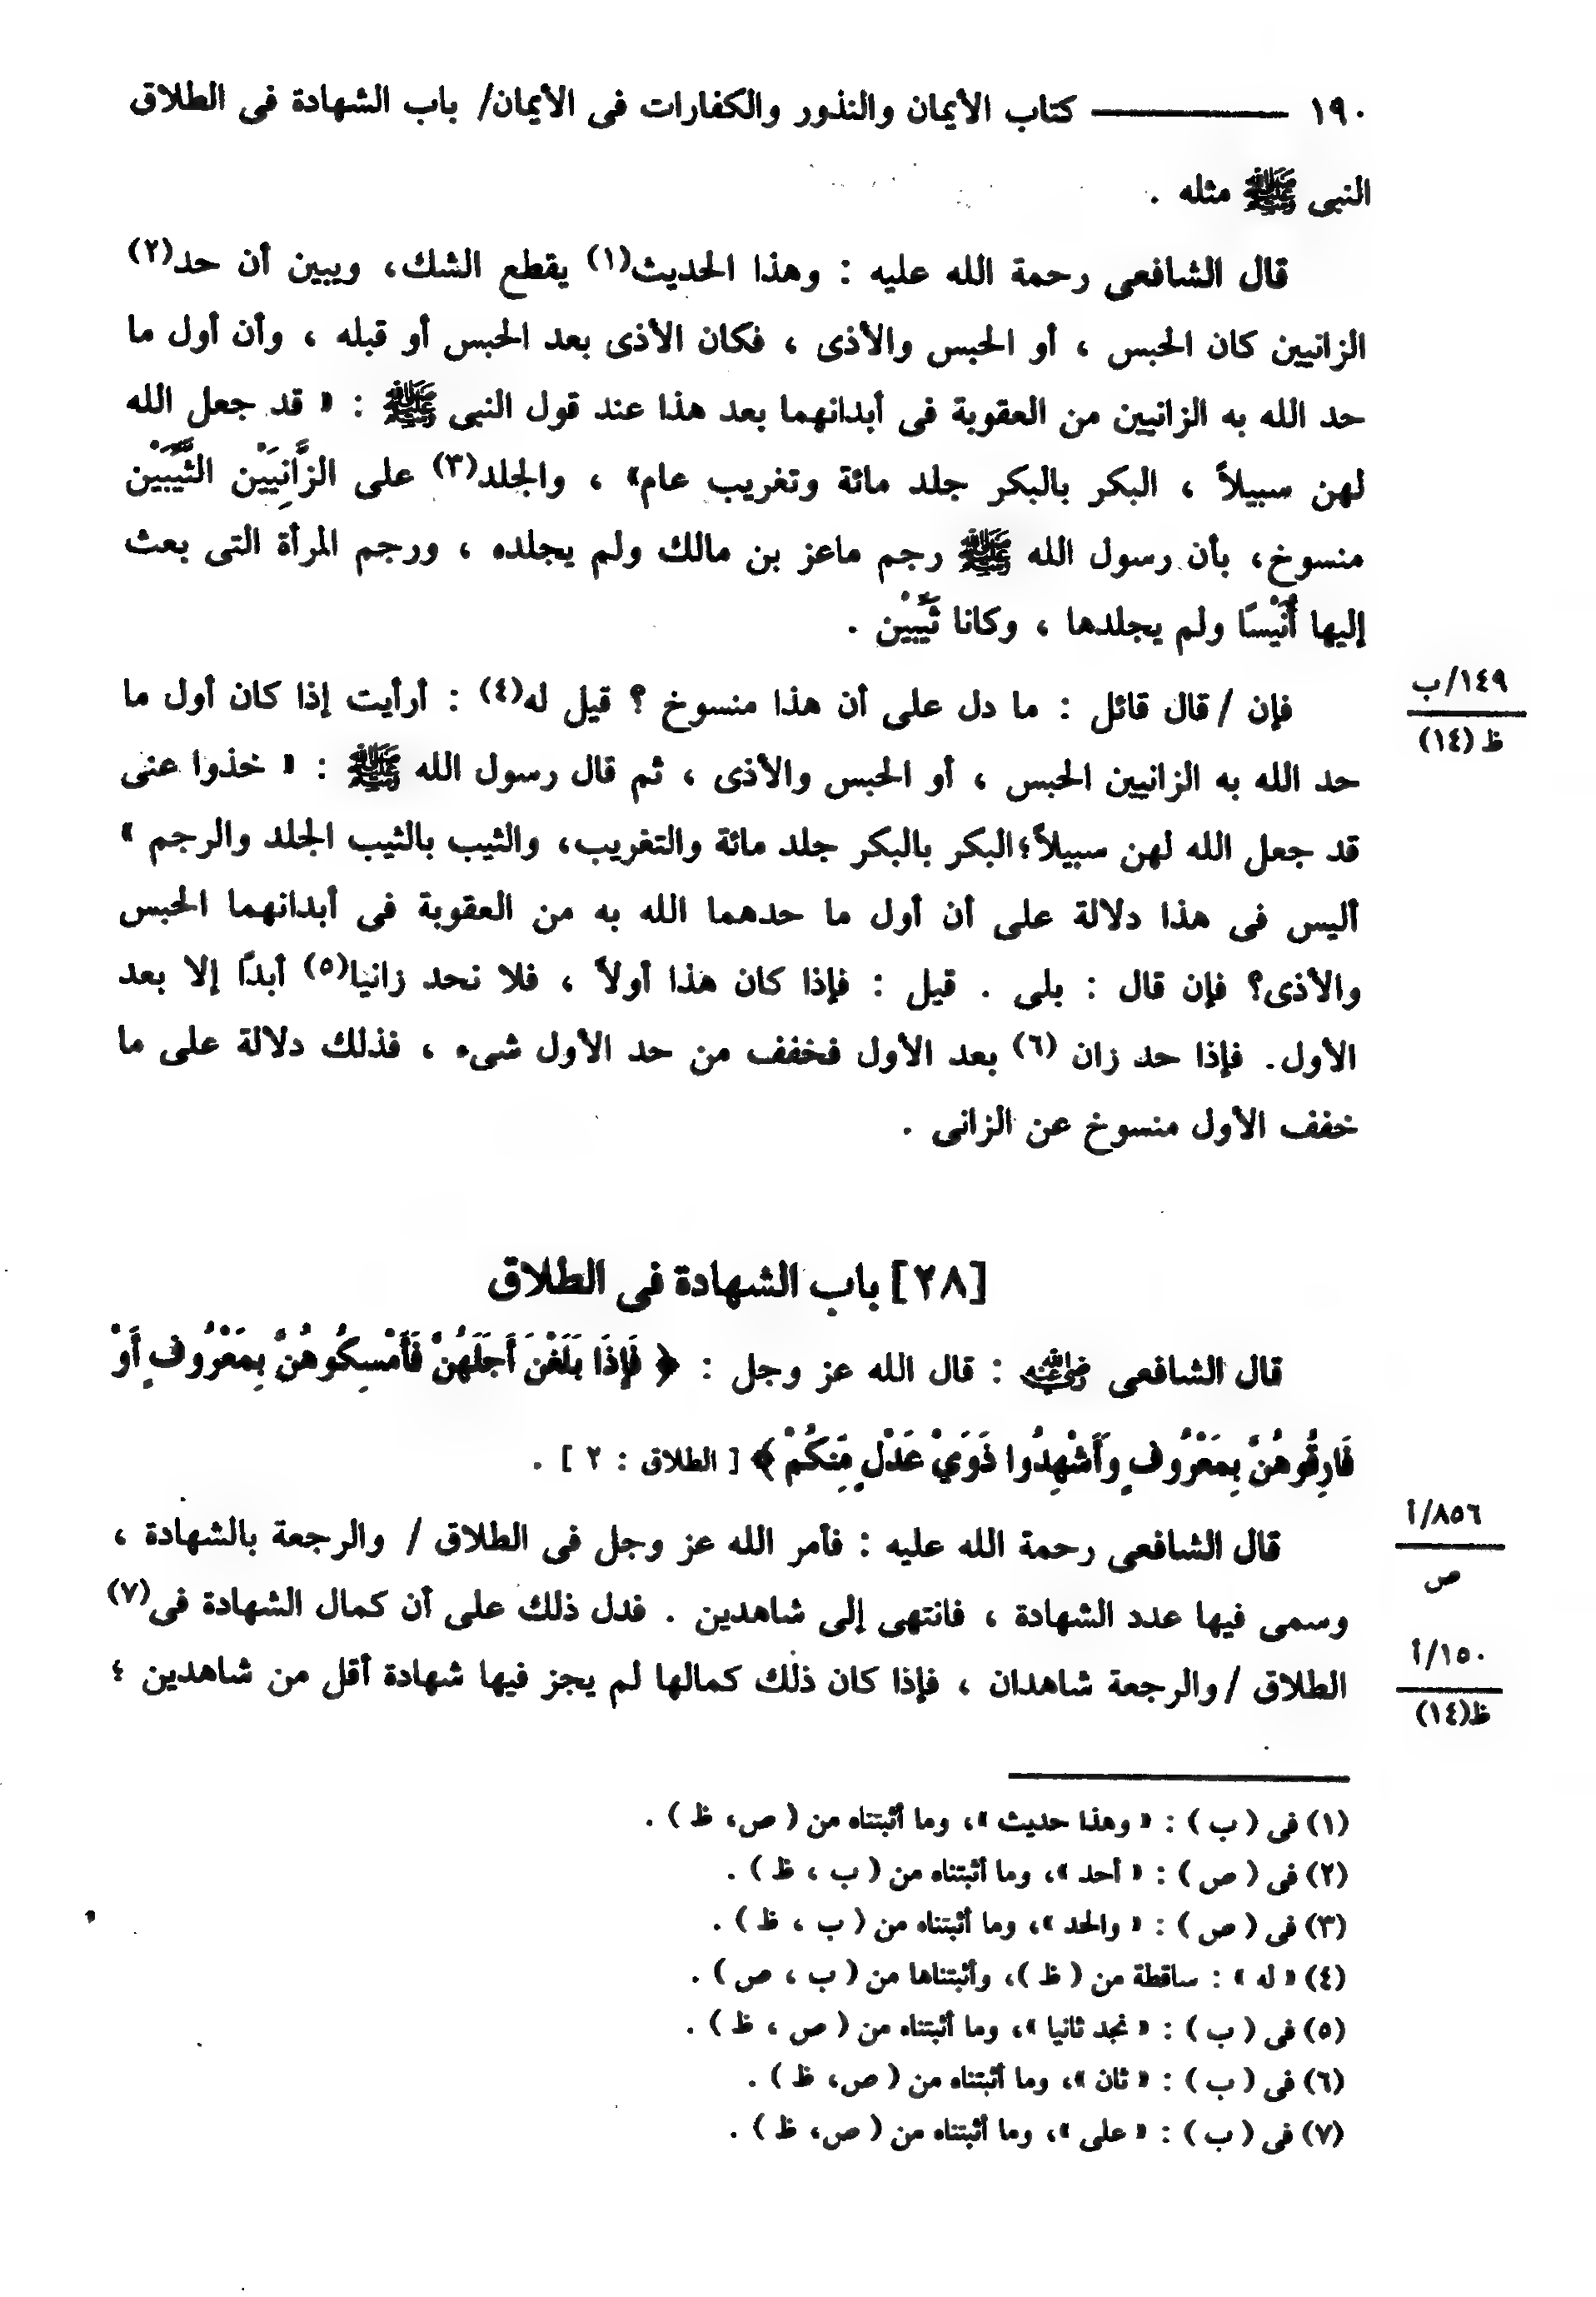 ١٩٠ ــــــــ كتاب الأيمان والنذور والكفارات فى الأيمان/ باب الشهادة فى الطلاق
النبى ﷺ مثله .
قال الشافعى رحمة الله عليه : وهذا الحديث(١) يقطع الشك، ويبين أن حد(٢)
الزانيين كان الحبس ، أو الحبس والأذى ، فكان الأذى بعد الحبس أو قبله ، وأن أول ما
حد الله به الزانيين من العقوبة فى أبدانهما بعد هذا عند قول النبى ﷺ : « قد جعل الله
لهن سبيلاً ، البكر بالبكر جلد مائة وتغريب عام» ، والجلد(٣) على الزَّانِيَيْن الثَّيِّبَيْن
منسوخ، بأن رسول الله ﷺ رجم ماعز بن مالك ولم يجلده ، ورجم المرأة التى بعث
إليها أُنَيْسًا ولم يجلدها ، وكانا ثَيِّبَيْن .
فإن / قال قائل : ما دل على أن هذا منسوخ ؟ قيل له(٤) : أرأيت إذا كان أول ما
١٤٩/ب
ظ (١٤)
حد الله به الزانيين الحبس ، أو الحبس والأذى ، ثم قال رسول الله ﷺ : « خذوا عنى
قد جعل الله لهن سبيلاً؛البكر بالبكر جلد مائة والتغريب، والثيب بالثيب الجلد والرجم »
أليس فى هذا دلالة على أن أول ما حدهما الله به من العقوبة فى أبدانهما الحبس
والأذى؟ فإن قال : بلى . قيل : فإذا كان هذا أولاً ، فلا نحد زانيا(٥) أبدًا إلا بعد
الأول. فإذا حد زان (٦) بعد الأول فخفف من حد الأول شىء ، فذلك دلالة على ما
خفف الأول منسوخ عن الزانى .
[٢٨] باب الشهادة فى الطلاق
قال الشافعى رضي الله عنه : قال الله عز وجل : ﴿ فَإِذَا بَلَغْنَ أَجَلَهُنَّ فَأَمْسِكُوهُنَّ بِمَعْرُوفٍ أَوْ
فَارِقُوهُنَّ بِمَعْرُوفٍ وَأَشْهِدُوا ذَوَيْ عَدْلٍ مِّنكُمْ ﴾ [ الطلاق : ٢ ] .
قال الشافعى رحمة الله عليه : فأمر الله عز وجل فى الطلاق / والرجعة بالشهادة ،
٨٥٦/أ
ص
وسمى فيها عدد الشهادة ، فانتهى إلى شاهدين . فدل ذلك على أن كمال الشهادة فى(٧)
الطلاق / والرجعة شاهدان ، فإذا كان ذلك كمالها لم يجز فيها شهادة أقل من شاهدين ؛
١٥٠/أ
ظ(١٤)
(١) فى ( ب ) : « وهذا حديث »، وما أثبتناه من ( ص، ظ ) .
(٢) فى ( ص ) : « أحد »، وما أثبتناه من ( ب ، ظ ) .
(٣) فى ( ص ) : « والحد »، وما أثبتناه من ( ب ، ظ ) .
(٤) « له » : ساقطة من ( ظ )، وأثبتناها من ( ب ، ص ) .
(٥) فى ( ب ) : « نجد ثانيا »، وما أثبتناه من ( ص ، ظ ) .
(٦) فى ( ب ) : « ثان »، وما أثبتناه من ( ص، ظ ) .
(٧) فى ( ب ) : « على »، وما أثبتناه من ( ص، ظ ) .